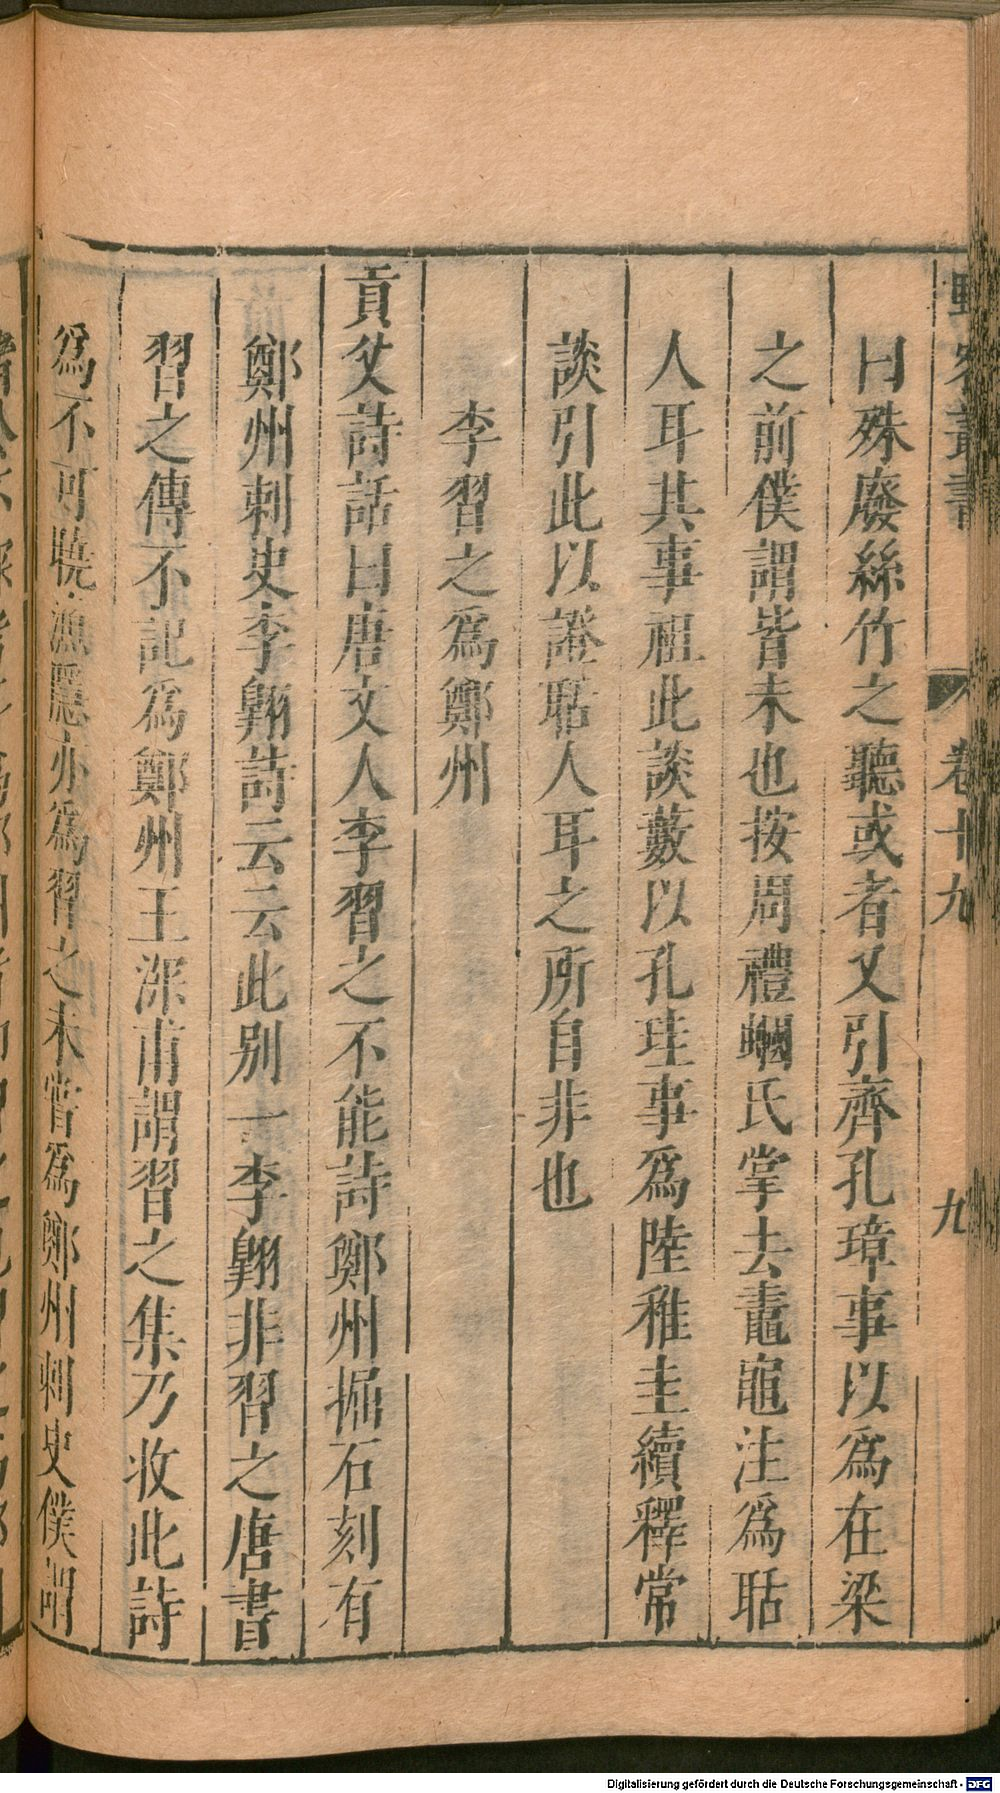 野客叢書 卷十九 九
曰殊廢絲竹之聽或者又引齊孔璋事以爲在梁
之前僕謂皆未也按周禮蟈氏掌去鼃黽注爲聒
人耳其事祖此談藪以孔珪事爲陸稚圭續釋常
談引此以證聒人耳之所自非也
李習之爲鄭州
貢父詩話曰唐文人李習之不能詩鄭州掘石刻有
鄭州刺史李翱詩云云此别一李翱非習之唐書
習之傳不記爲鄭州王深甫謂習之集乃收此詩
爲不可曉漁隱亦爲習之未嘗爲鄭州刺史僕謂
Digitalisierung gefördert durch die Deutsche Forschungsgemeinschaft - DFG